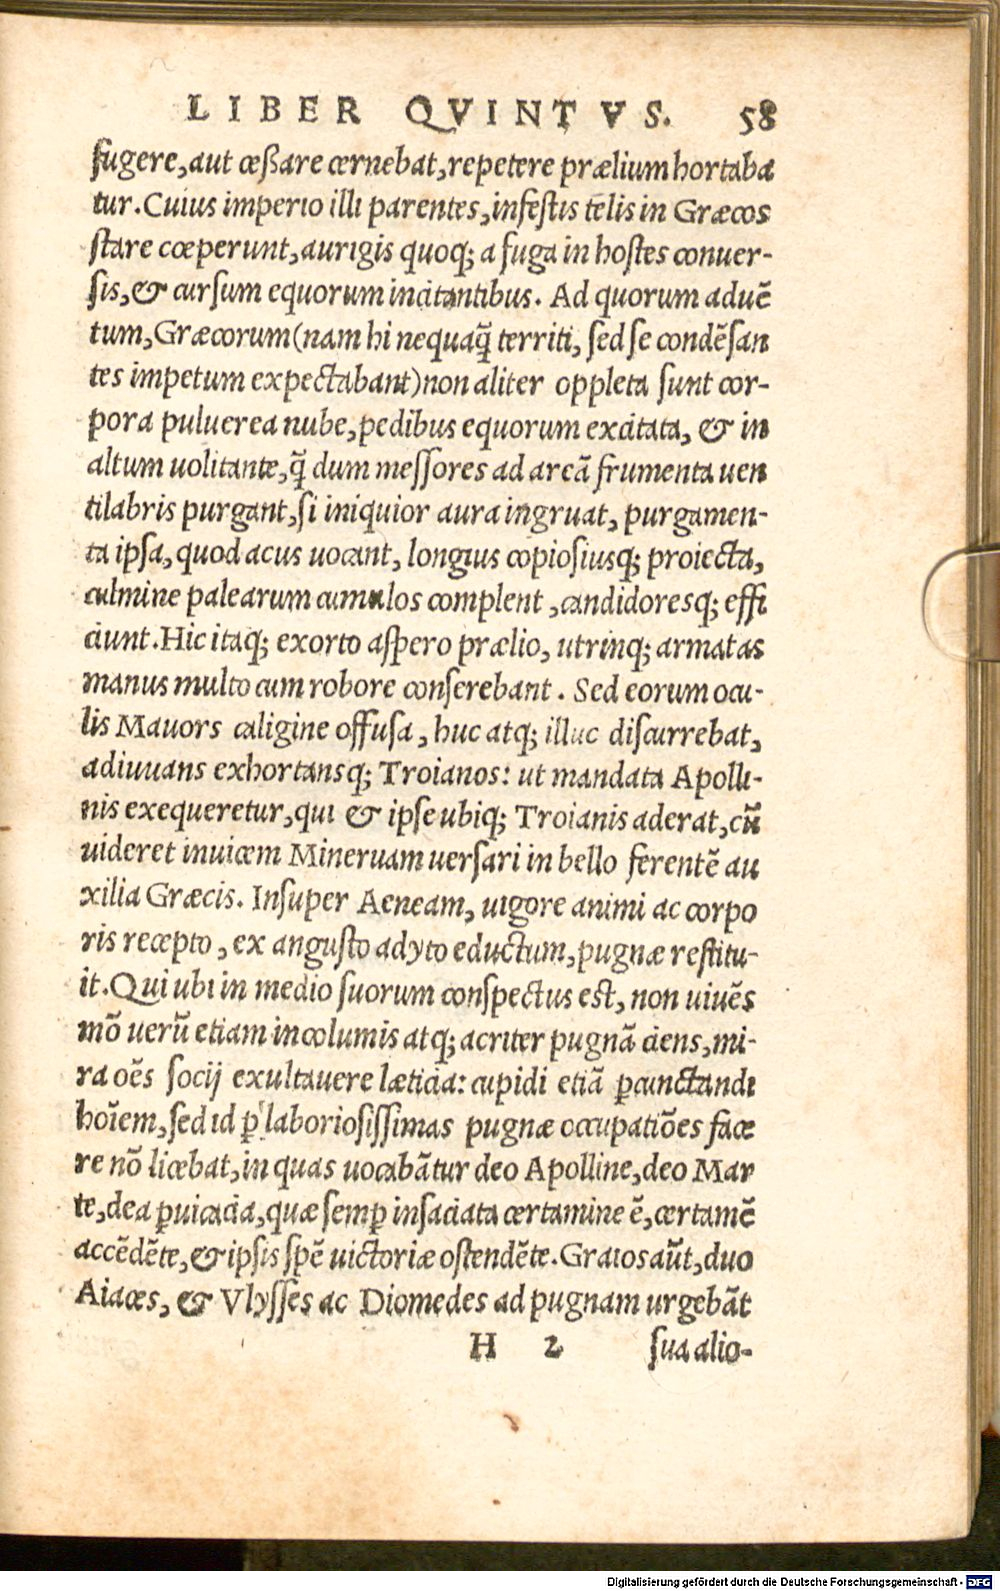 LIBER QVINTVS. 58
fugere, aut ceßare cernebat, repetere prælium hortaba
tur. Cuius imperio illi parentes, infestis telis in Græcos
stare cœperunt, aurigis quoq; a fuga in hostes conuer-
sis, & cursum equorum incitantibus. Ad quorum aduē
tum, Græcorum (nam hi nequaq̄ territi, sed se condēsan
tes impetum expectabant) non aliter oppleta sunt cor-
pora puluerea nube, pedibus equorum excitata, & in
altum uolitante, q̄ dum messores ad areā frumenta uen
tilabris purgant, si iniquior aura ingruat, purgamen-
ta ipsa, quod acus uocant, longius copiosiusq; proiecta,
culmine palearum cumulos complent, candidoresq; effi
ciunt. Hic itaq; exorto aspero prælio, utrinq; armatas
manus multo cum robore conserebant. Sed eorum ocu-
lis Mauors caligine offusa, huc atq; illuc discurrebat,
adiuuans exhortansq; Troianos: ut mandata Apolli-
nis exequeretur, qui & ipse ubiq; Troianis aderat, cū
uideret inuicem Mineruam uersari in bello ferentē au
xilia Græcis. Insuper Aeneam, uigore animi ac corpo
ris recepto, ex angusto adyto eductum, pugnæ restitu-
it. Qui ubi in medio suorum conspectus est, non uiuēs
mō uerū etiam incolumis atq; acriter pugnā ciens, mi-
ra oēs socij exultauere læticia: cupidi etiā ꝑcunctandi
hoīem, sed id ꝑ laboriosissimas pugnæ occupatiōes face
re nō licebat, in quas uocabātur deo Apolline, deo Mar
te, dea ꝑuicacia, quæ semꝑ insaciata certamine ē, certamē
accēdēte, & ipsis spē uictoriæ ostendēte. Graios aūt, duo
Aiaces, & Vlysses ac Diomedes ad pugnam urgebāt
H 2 sua alio-
Digitalisierung gefördert durch die Deutsche Forschungsgemeinschaft - DFG